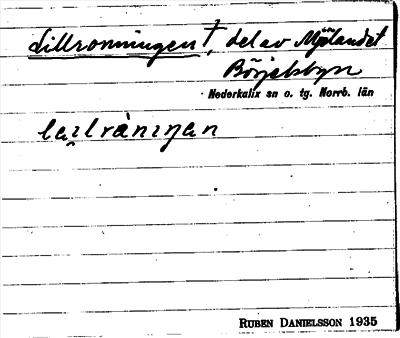 Lillronningen†, del av Mjölandet
Börjelsbyn
Nederkalix sn o. tg. Norrb. län
RUBEN DANIELSSON 1935